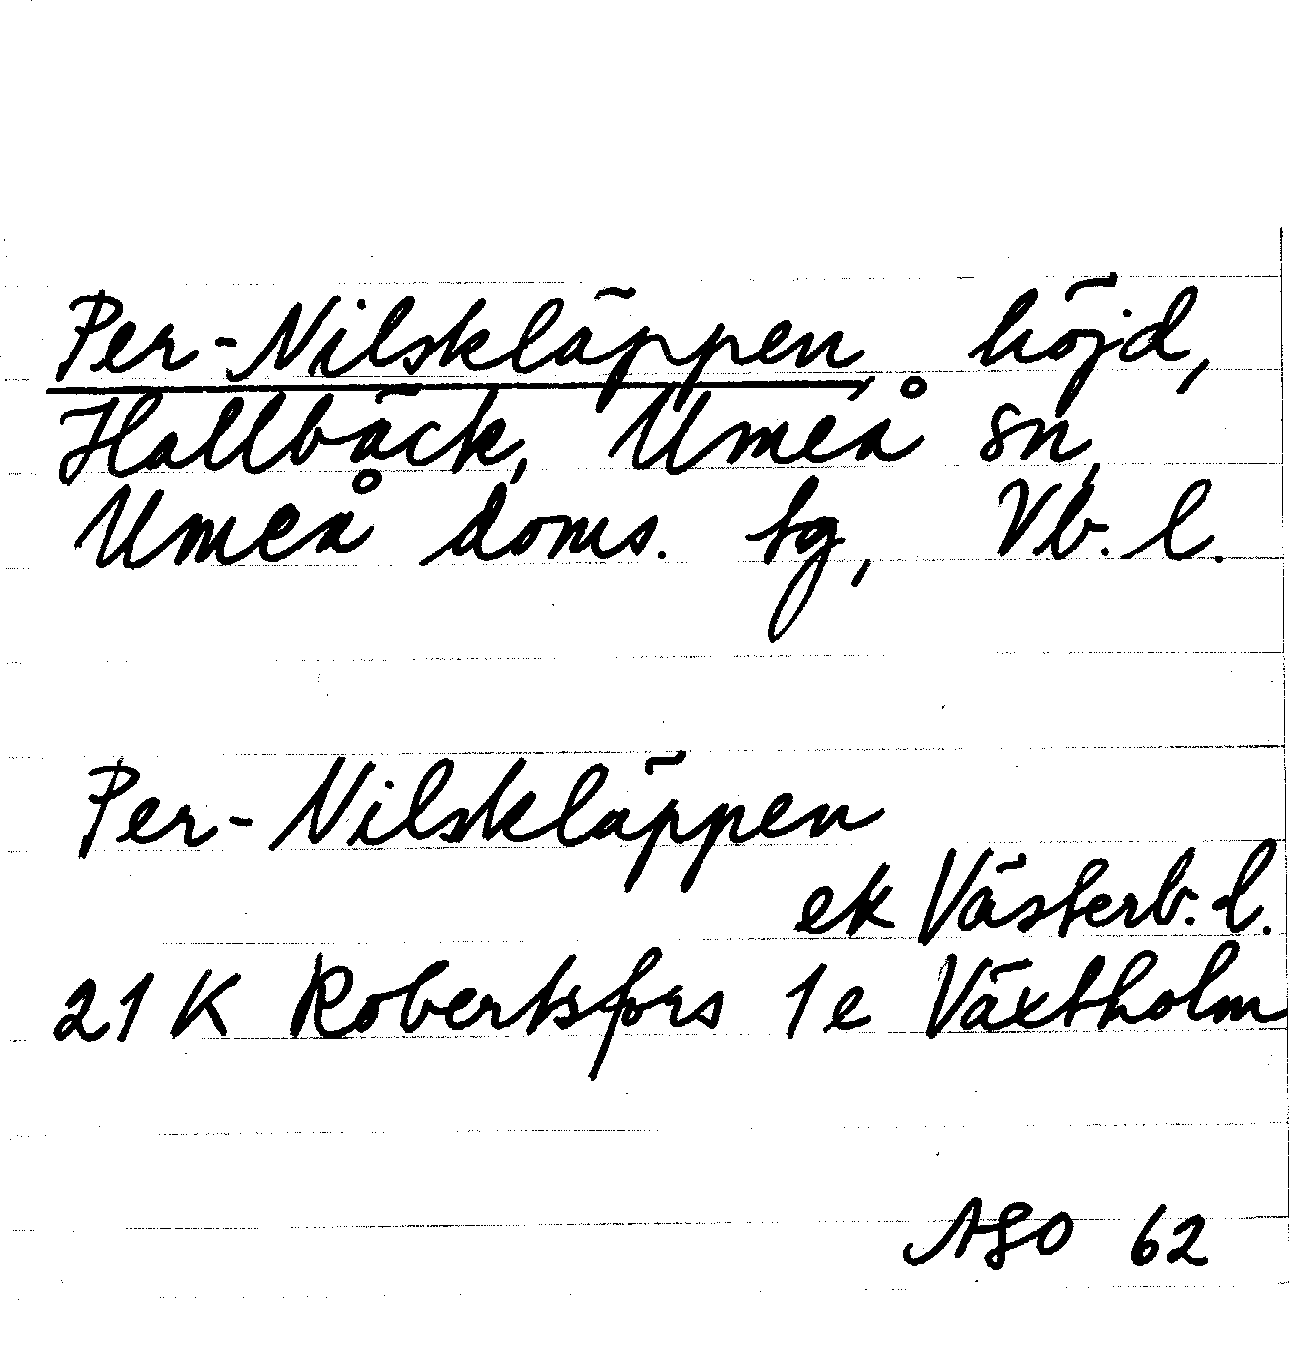 Per-Nilskläppen, höjd,
Hallbäck, Umeå sn,
Umeå doms. tg, Vb. l.
Per-Nilskläppen
ek Västerb. l.
21 K Robertsfors 1e Växtholm
ASO 62